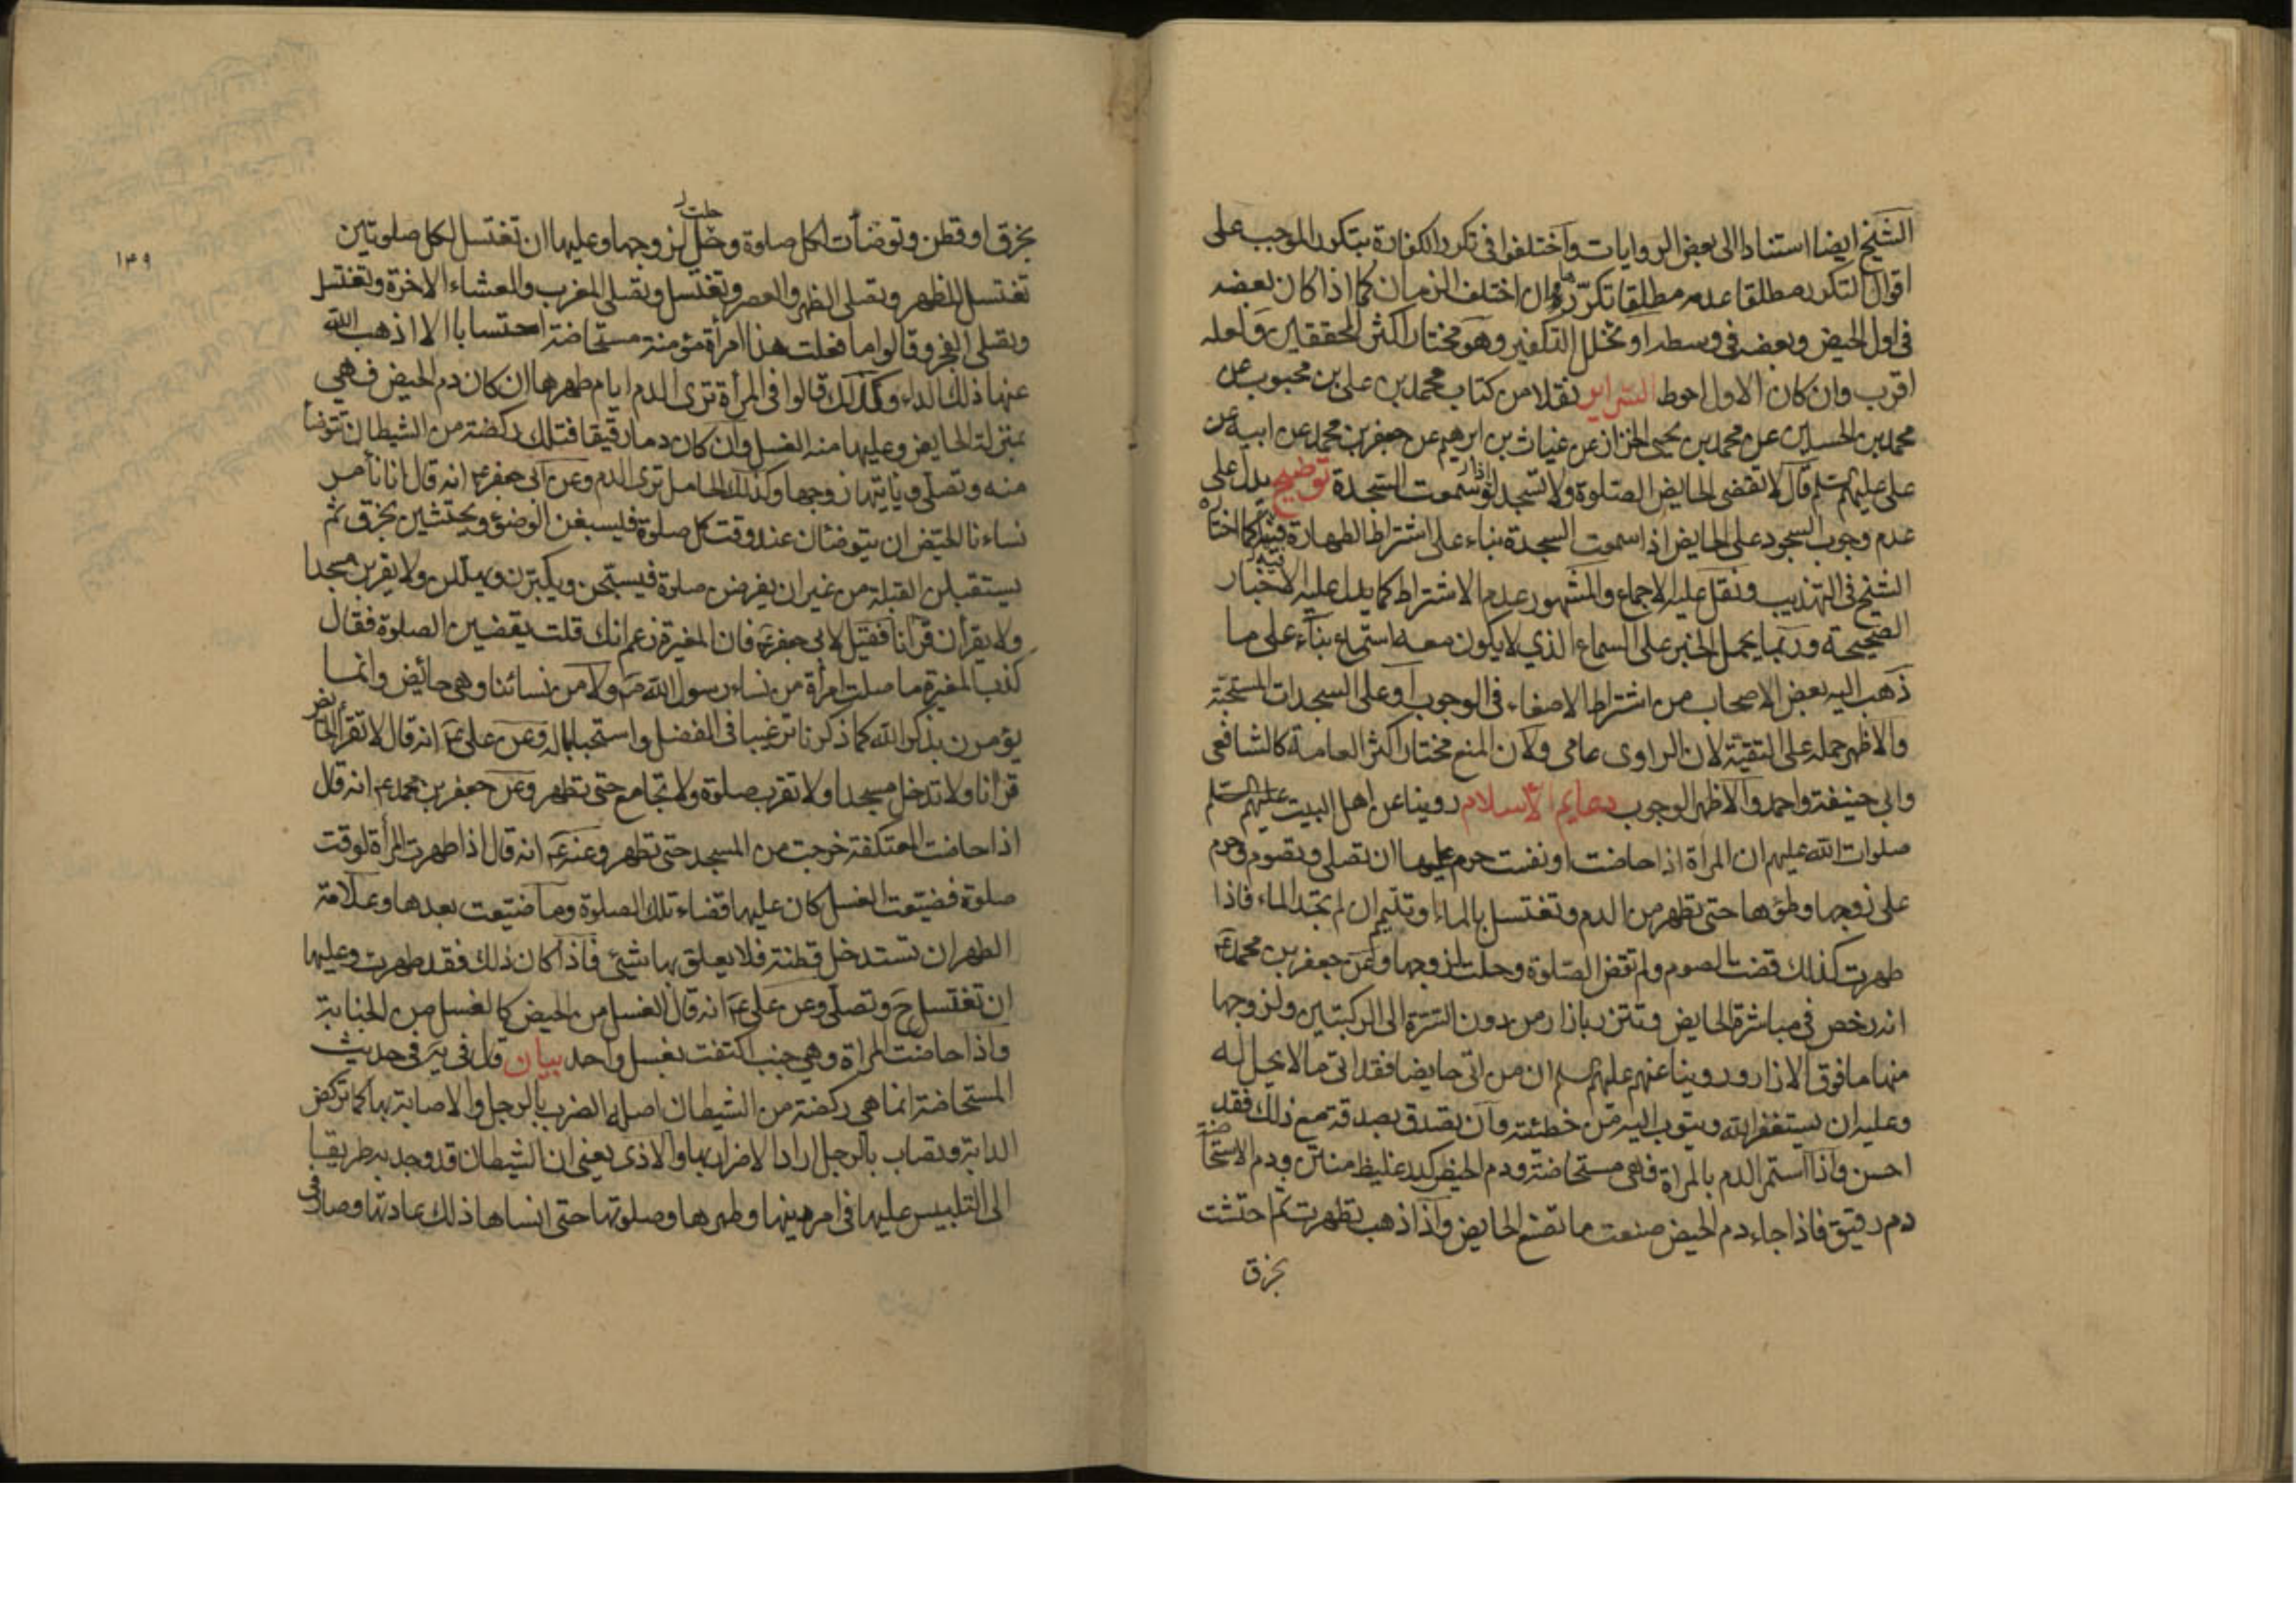 الشيخ ايضا استنادا الى بعض الروايات واختلفوا في تكرر الكفارة بتكرر الموجب على
اقوال التكرر مطلقا عدمه مطلقا تكررها ان اختلف الزمان كما اذا كان بعضه
في اول الحيض وبعضه في وسطه او تخلل التكفير وهو مختار اكثر المحققين ولعله
اقرب وان كان الاول احوط السرائر نقلا من كتاب محمد بن علي بن محبوب عن
محمد بن الحسين عن محمد بن يحيى الخزاز عن غياث بن ابرهيم عن جعفر بن محمد عن ابيه عن
علي عليهم السلم قال لا تقضى الحايض الصلوة ولا تسجد اذا سمعت السجدة توضيح يدل على
عدم وجوب السجود على الحايض اذا سمعت السجدة بناء على اشتراط الطهارة فيه كما اختاره
الشيخ في التهذيب ونقل عليه الاجماع والمشهور عدم الاشتراط كما يدل عليه الاخبار
الصحيحة وربما يحمل الخبر على السماع الذي لا يكون معه استماع بناء على ما
ذهب اليه بعض الاصحاب من اشتراط الاصغاء في الوجوب او على السجدات المستحبة
والاظهر حمله على التقية لان الراوى عامى ولان المنع مختار اكثر العامة كالشافعى
وابي حنيفة واحمد والاظهر الوجوب دعايم الاسلام روينا عن اهل البيت عليهم السلم
صلوات الله عليهم ان المراة اذا حاضت او نفست حرم عليها ان تصلى وتصوم وحرم
على زوجها وطؤها حتى تطهر من الدم وتغتسل بالماء او تتيمم ان لم تجد الماء فاذا
طهرت كذلك قضت الصوم ولم تقض الصلوة وحلت لزوجها وعن جعفر بن محمد ع
انه رخص في مباشرة الحايض وتتزر بازار من دون السرة الى الركبتين ولزوجها
منها ما فوق الازار وروينا عنهم عليهم السلم ان من اتى حايضا فقد اتى ما لا يحل له
وعليه ان يستغفر الله ويتوب اليه من خطئته وان تصدق بصدقة مع ذلك فقد
احسن واذا استمر الدم بالمراة فهى مستحاضة ودم الحيض كدر غليظ منتن ودم الاستحاضة
دم رقيق فاذا جاء دم الحيض صنعت ما تصنع الحايض واذا ذهب تطهرت ثم احتشت
بخرق
١٣٩
بخرق او قطن وتوضأت لكل صلوة وحل لزوجها وعليها ان تغتسل لكل صلوتين
تغتسل للظهر وتصلى الظهر والعصر وتغتسل وتصلى المغرب والعشاء الاخرة وتغتسل
وتصلى الفجر وقالوا ما فعلت هذا امرأة مؤمنة مستحاضة احتسابا الا اذهب الله
عنها ذلك الداء وكذلك قالوا في المرأة ترى الدم ايام طهرها ان كان دم الحيض فهي
بمنزلة الحايض وعليها منه الغسل وان كان دما رقيقا فتلك ركضة من الشيطان تتوضأ
منه وتصلى وياتيها زوجها وكذلك الحامل ترى الدم وعن ابي جعفر ع انه قال انا نأمر
نساءنا الحيض ان يتوضئان عند وقت كل صلوة فيسبغن الوضوء ويحتشين بخرق ثم
يستقبلن القبلة من غير ان يفرضن صلوة فيسبحن ويكبرن ويهللن ولا يقربن مسجدا
ولا يقرأن قرآنا فقيل لابي جعفر ع فان المغيرة زعم انك قلت يقضين الصلوة فقال
كذب المغيرة ما صلت امرأة من نساء رسول الله ص ولا من نسائنا وهي حائض وانما
يؤمرن بذكر الله كما ذكرنا ترغيبا في الفضل واستحبابا له وعن علي ع انه قال لا تقرأ الحائض
قرآنا ولا تدخل مسجدا ولا تقرب صلوة ولا تجامع حتى تطهر وعن جعفر بن محمد ع انه قال
اذا حاضت المعتكفة خرجت من المسجد حتى تطهر وعنه ع انه قال اذا طهرت المرأة لوقت
صلوة فضيعت الغسل كان عليها قضاء تلك الصلوة وما ضيعت بعدها وعلامة
الطهر ان تستدخل قطنة فلا يعلق بها شئ فاذا كان ذلك فقد طهرت وعليها
ان تغتسل ح وتصلى وعن علي ع انه قال الغسل من الحيض كالغسل من الجنابة
واذا حاضت المراة وهي جنب اكتفت بغسل واحد بيان قال في يه في حديث
المستحاضة انما هي ركضة من الشيطان اصله الضرب بالرجل والاصابة بها كما تركض
الدابة وتصاب بالرجل اراد الاضرار بها والاذى يعنى ان الشيطان قد وجد به طريقا
الى التلبيس عليها في امر دينها وطهرها وصلوتها حتى انساها ذلك عادتها وصار في